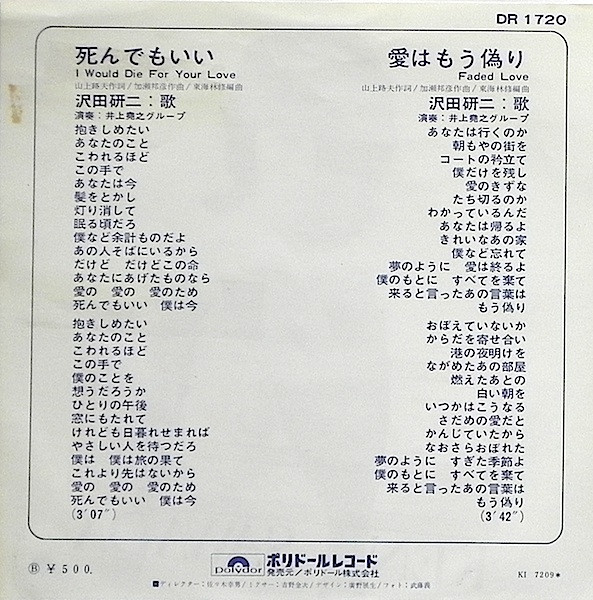 DR 1720
死んでもいい
I Would Die For Your Love
山上路夫作詞/加瀬邦彦作曲/東海林修編曲
沢田研二：歌
演奏：井上堯之グループ
抱きしめたい
あなたのこと
こわれるほど
この手で
あなたは今
髪をとかし
灯り消して
眠る頃だろ
僕など余計ものだよ
あの人そばにいるから
だけど　だけどこの命
あなたにあげたものなら
愛の　愛の　愛のため
死んでもいい　僕は今
抱きしめたい
あなたのこと
こわれるほど
この手で
僕のことを
想うだろうか
ひとりの午後
窓にもたれて
けれども日暮れせまれば
やさしい人を待つだろ
僕は　僕は旅の果て
これより先はないから
愛の　愛の　愛のため
死んでもいい　僕は今
(3′07″)
愛はもう偽り
Faded Love
山上路夫作詞/加瀬邦彦作曲/東海林修編曲
沢田研二：歌
演奏：井上堯之グループ
あなたは行くのか
朝もやの街を
コートの衿立て
僕だけを残し
愛のきずな
たち切るのか
わかっているんだ
あなたは帰るよ
きれいなあの家
僕など忘れて
夢のように　愛は終るよ
僕のもとに　すべてを棄て
来ると言ったあの言葉は
もう偽り
おぼえていないか
からだを寄せ合い
港の夜明けを
ながめたあの部屋
燃えたあとの
白い朝を
いつかはこうなる
さだめの愛だと
かんじていたから
なおさらおぼれた
夢のように　すぎた季節よ
僕のもとに　すべてを棄て
来ると言ったあの言葉は
もう偽り
(3′42″)
Ⓑ ￥500.
polydor
ポリドールレコード
発売元/ポリドール株式会社
KI 7209*
■ディレクター：佐々木幸男/ミキサー：吉野金次/デザイン：廣野展生/フォト：武藤義